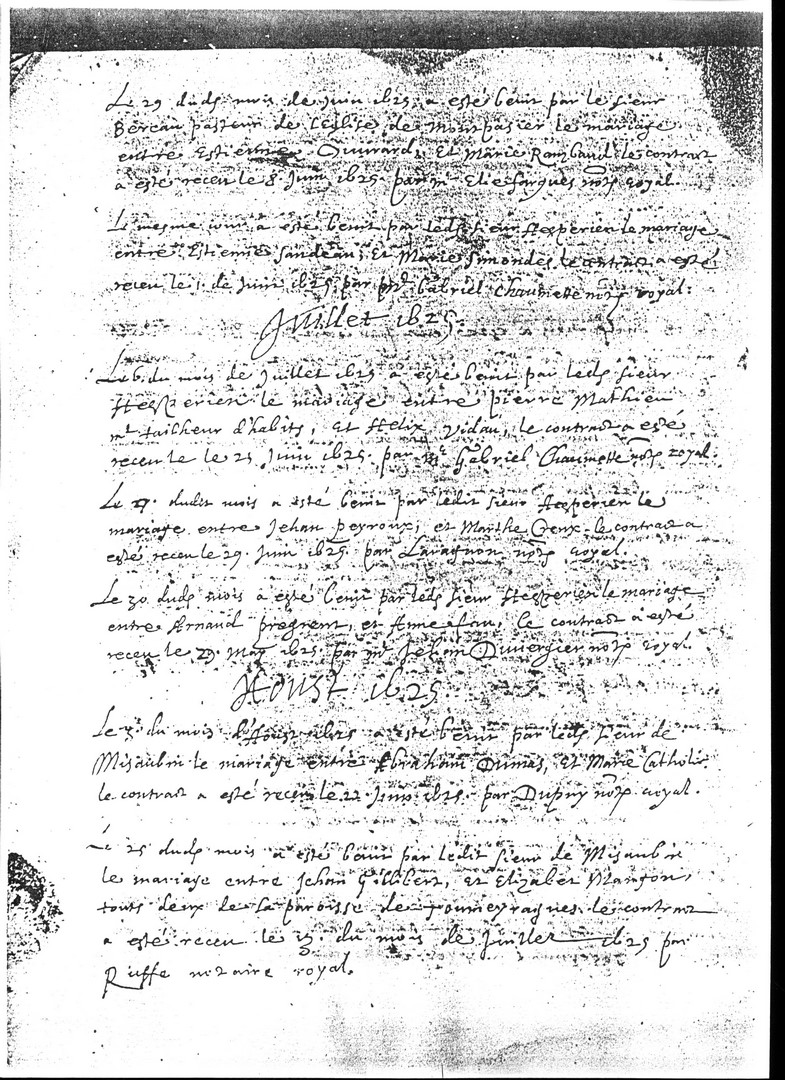 Le 29 dudt mois de Juin 1625 a esté benit par le sieur
Bereau pasteur de l'eglise de Montpasier le mariage
entre Estienne Ouvrard, Et Marie Rambaud le contract
a esté receu le 8 Juin 1625. par mr Elie fargues notre royal.
Le mesme jour a esté benit par ledt sieur Hesperien le mariage
entre Estienne Jandeau, Et Marie Simondes le contract a esté
receu le 1. de Juin 1625 par mr Gabriel Chaumette notre royal.
Juillet 1625.
Le 6. du mois de Juillet 1625 a esté benit par ledt sieur
Hesperien le mariage entre pierre Mathieu
mr tailheur d'habits, et Helix Vidau, le contract a esté
receu le le 25 Juin 1625. par mr Gabriel Chaumette notre royal.
Le dudit mois a esté benit par ledit sieur Hesperien le
mariage entre Jehan peyroux, et Marthe le contract a
esté receu le 29. Juin 1625. par Lavagnon notre royal.
Le 30 dudt mois a esté benit par ledt sieur Hesperien le mariage
entre Arnaud pregnent, et Anne le contract a esté
receu le 29. May 1625. par mr Jehan Duvergier notre royal.
Aoust 1625
Le 3. du mois d'Aoust 1625 a esté benit par ledt sieur de
Misaubin le mariage entre Abraham Dumas, et Marie Catholic.
le contract a esté receu le 22 Juin 1625. par Dupuy notre royal.
Le 25 dudt mois a esté benit par ledit sieur de Misaubin
le mariage entre Jehan Gillbert, et Elizabet Mangon,
touts deux de la paroisse de foumeyragues le contract
a esté receu le 15. du mois de Juillet 1625 par
Ruffe notaire royal.